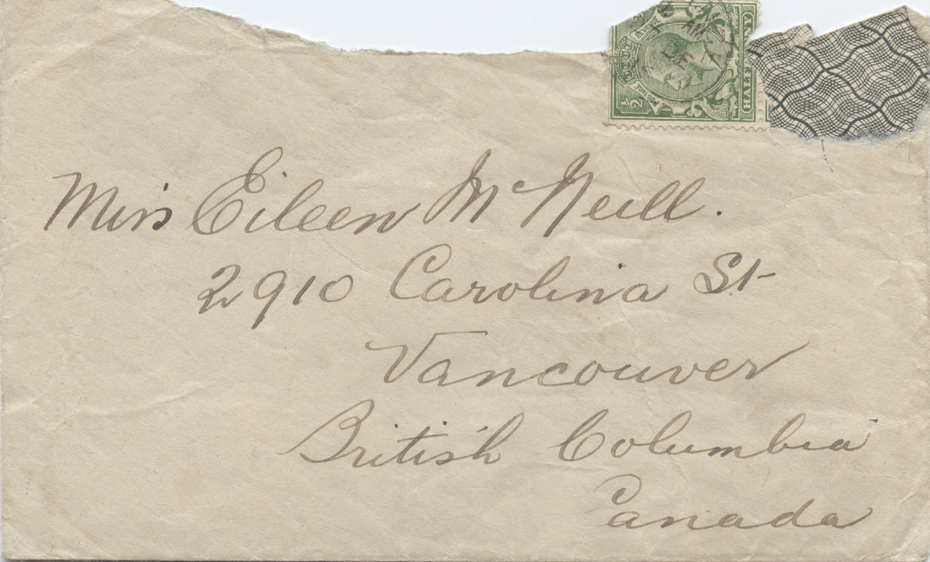 ½
HALF
Miss Eileen McNeill.
2910 Carolina St
Vancouver
British Columbia
Canada